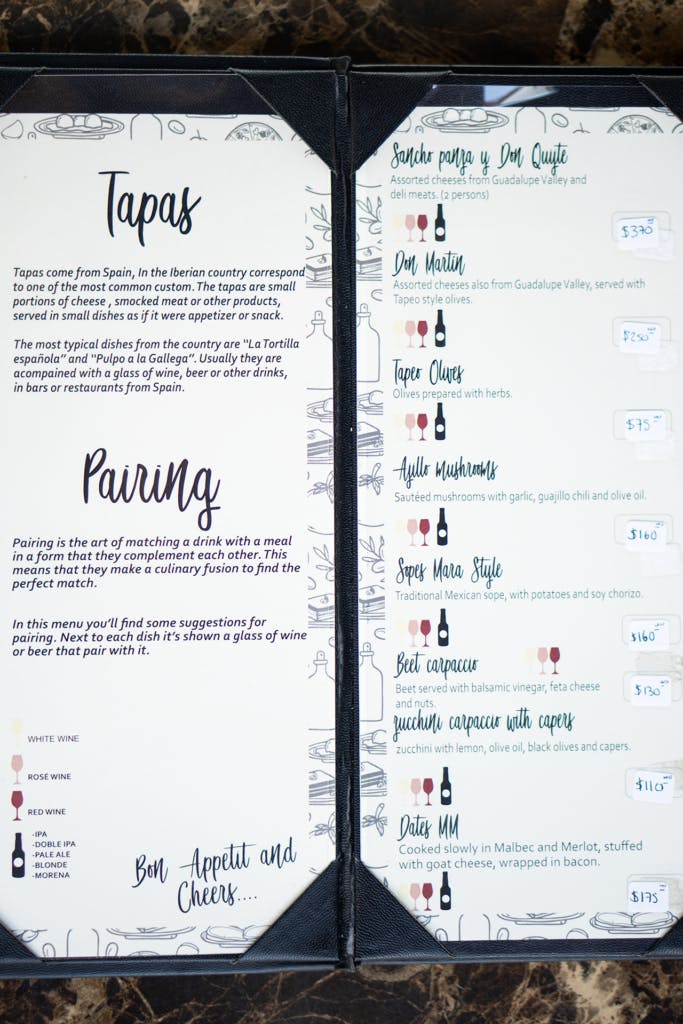 Tapas
Tapas come from Spain, In the Iberian country correspond
to one of the most common custom. The tapas are small
portions of cheese , smocked meat or other products,
served in small dishes as if it were appetizer or snack.
The most typical dishes from the country are "La Tortilla
española" and "Pulpo a la Gallega". Usually they are
acompained with a glass of wine, beer or other drinks,
in bars or restaurants from Spain.
Pairing
Pairing is the art of matching a drink with a meal
in a form that they complement each other. This
means that they make a culinary fusion to find the
perfect match.
In this menu you'll find some suggestions for
pairing. Next to each dish it's shown a glass of wine
or beer that pair with it.
WHITE WINE
ROSE WINE
RED WINE
-IPA
-DOBLE IPA
-PALE ALE
-BLONDE
-MORENA
Bon Appetit and
Cheers....
Sancho panza y Don Quyte
Assorted cheeses from Guadalupe Valley and
deli meats. (2 persons)
$370
Don Martin
Assorted cheeses also from Guadalupe Valley, served with
Tapeo style olives.
$250
Tapeo Olives
Olives prepared with herbs.
$75
Ajillo mushrooms
Sautéed mushrooms with garlic, guajillo chili and olive oil.
$160
Sopes Mara Style
Traditional Mexican sope, with potatoes and soy chorizo.
$160
Beet carpaccio
Beet served with balsamic vinegar, feta cheese
and nuts.
$130
zucchini carpaccio with capers
zucchini with lemon, olive oil, black olives and capers.
$110
Dates MM
Cooked slowly in Malbec and Merlot, stuffed
with goat cheese, wrapped in bacon.
$175